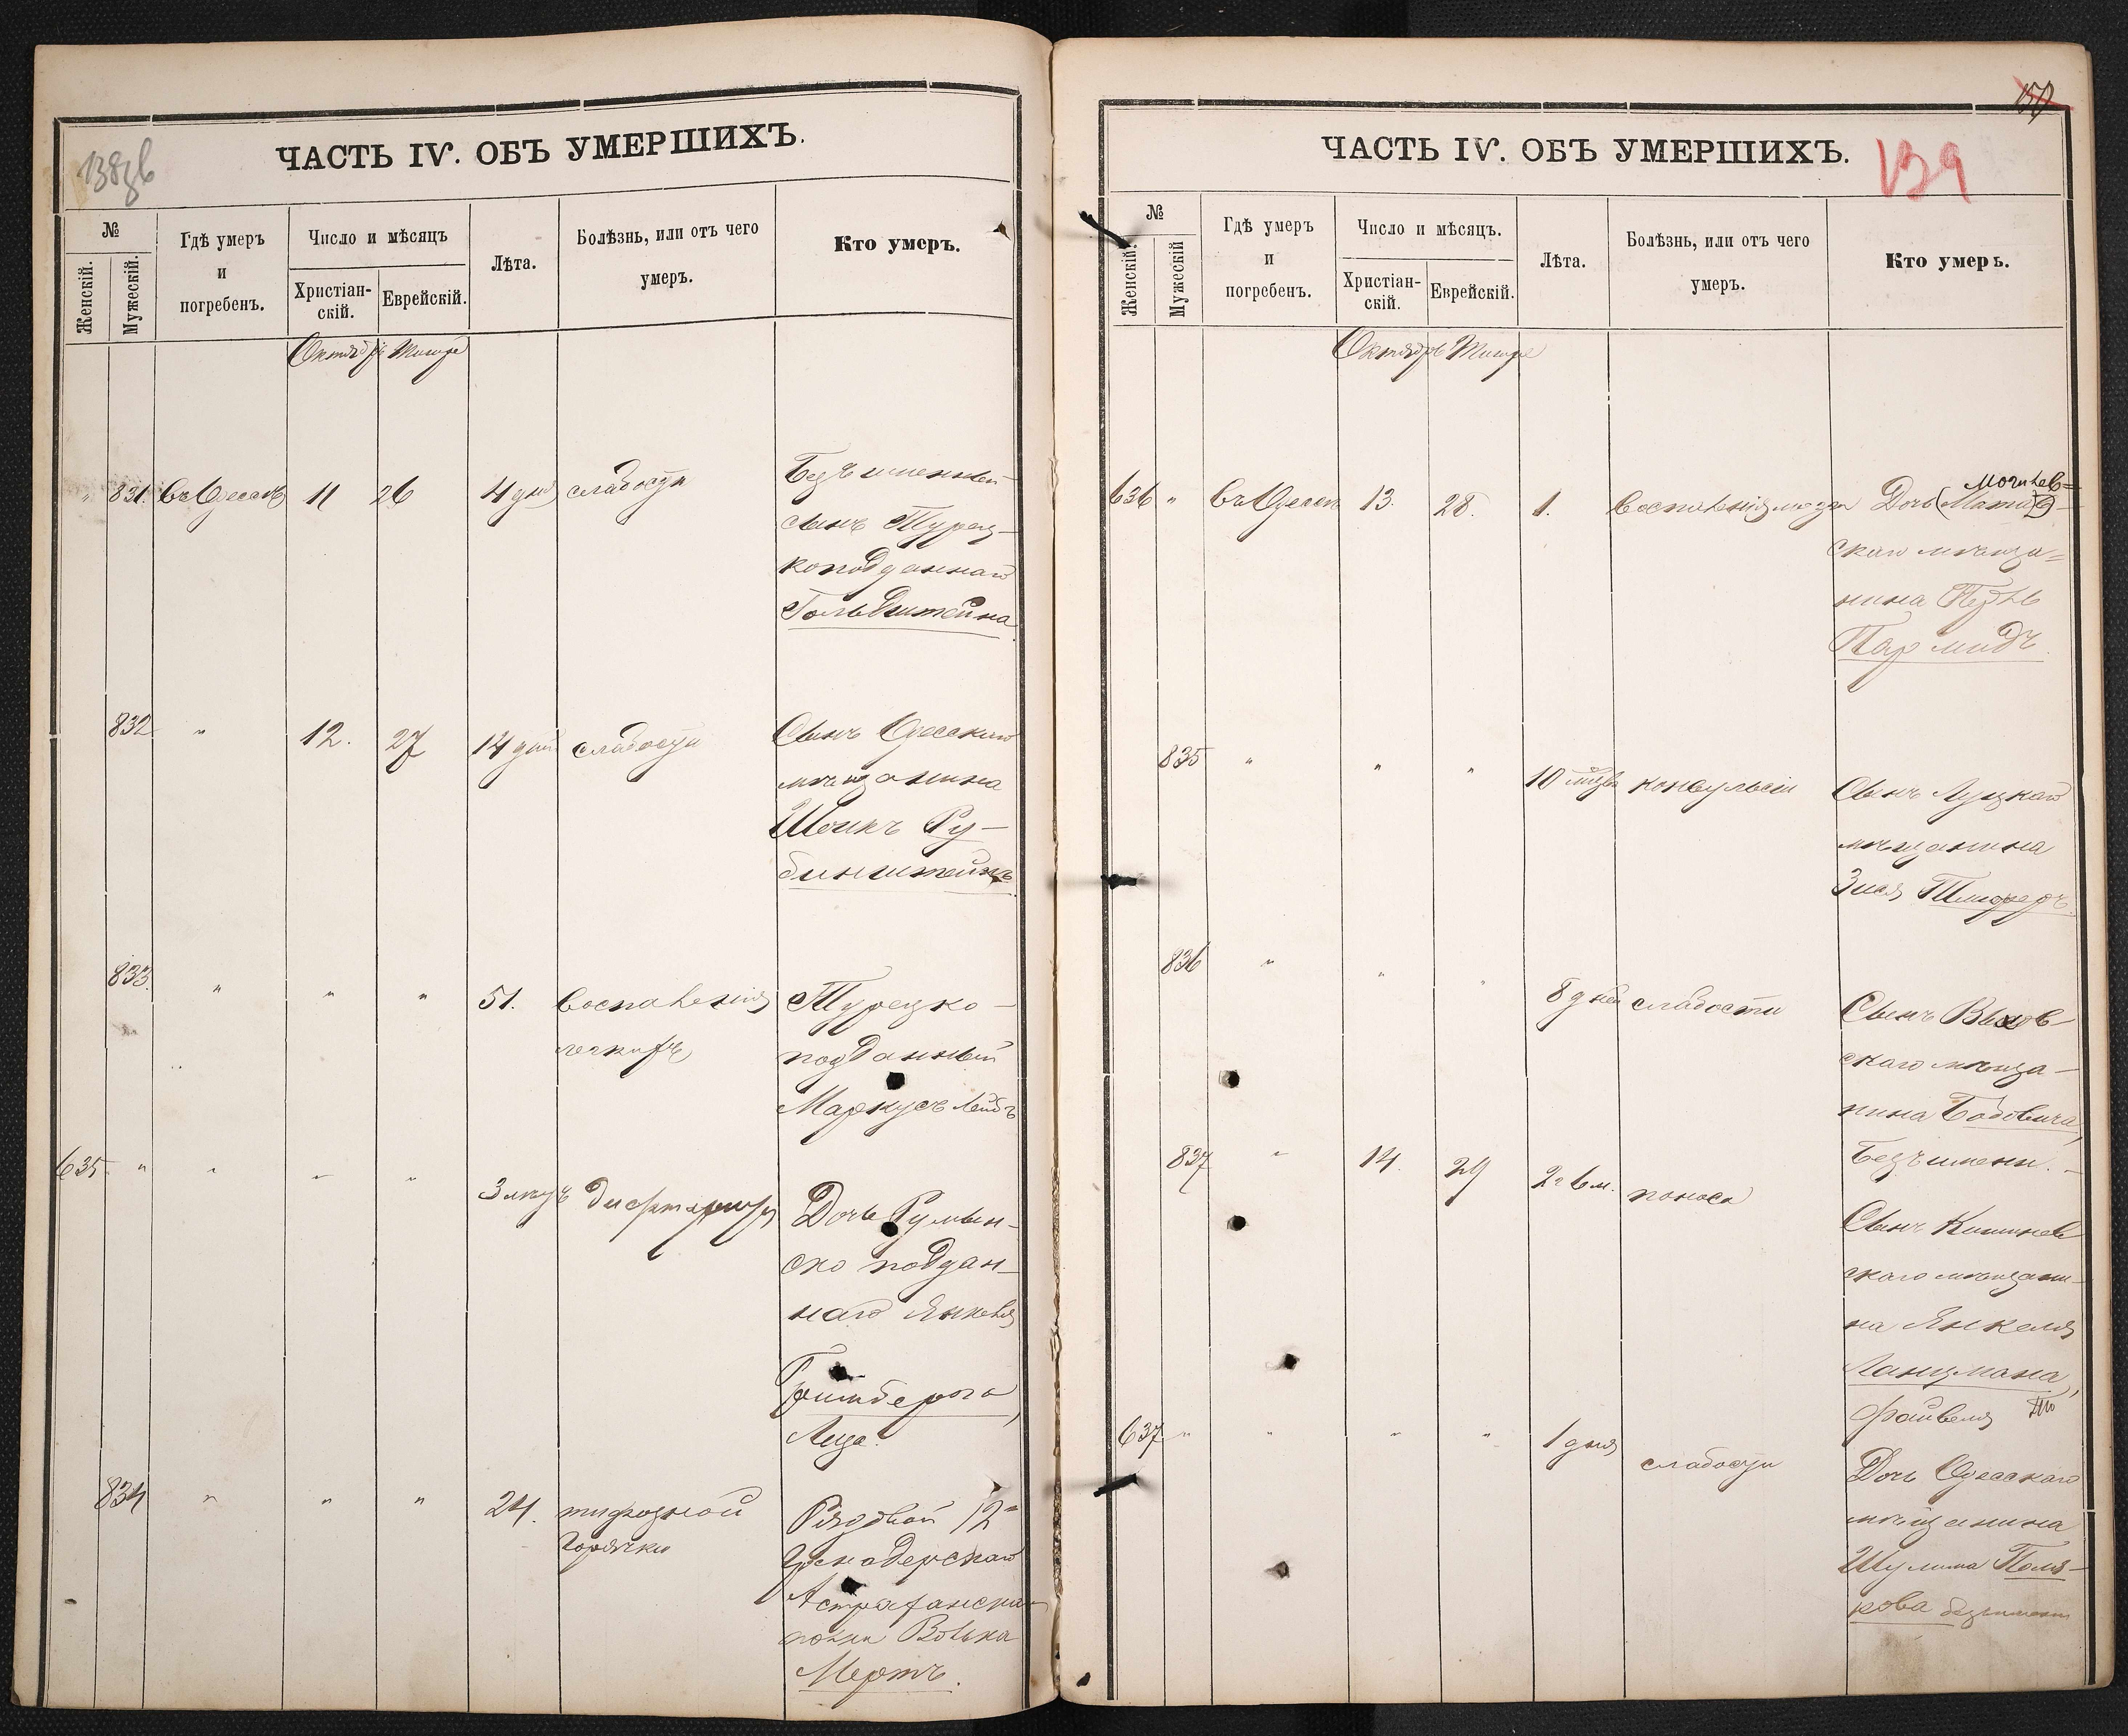 138 зв
ЧАСТЬ IV. ОБЪ УМЕРШИХЪ.
№
Женскій.
Мужескій.
Гдѣ умеръ
и
погребенъ.
Число и мѣсяцъ
Христіан-
скій.
Еврейскій.
Лѣта.
Болѣзнь, или отъ чего
умеръ.
Кто умеръ.
Октябрь Тишре
" 831. въ Одессѣ 11 26 4 дня слабости
Безъименный
сынъ Турец-
коподданнаго
Гольдштейна
832 " 12. 27 14 дней слабости
Сынъ Одесскаго
мѣщанина
Шоикъ Ру-
бинштейнъ
833. " " " 51. Воспаленія
легкихъ
Турецко-
подданный
Маркусъ Лейбъ
635 " " " " 3 мѣс.
Дочь Румын-
ско поддан-
наго Янкеля
Гринберга,
Лиза.
834 " " " 24. тифозной
горячки
Рядовой 12го
Гренадерскаго
Астраханскаго
полка Волька
Мертъ.
139
ЧАСТЬ IV. ОБЪ УМЕРШИХЪ.
№
Женскій.
Мужескій
Гдѣ умеръ
и
погребенъ.
Число и мѣсяцъ.
Христіан-
скій.
Еврейскій.
Лѣта.
Болѣзнь, или отъ чего
умеръ.
Кто умеръ.
Октябрь Тишре
636 " въ Одессѣ 13. 28. 1. Воспаленія мозга
Могилев=
Дочь
скаго мѣща=
нина
Пармидъ.
835 " " " 10 мѣсяц. конвульсіи
Сынъ Луцкаго
мѣщанина
836 " " " 8 дней слабости
Сынъ
скаго мѣща-
нина Бабовича,
Безъимени.
837 " 14. 29 2 г 6 м. поноса
Сынъ Кишинев
скаго мѣщани-
на Янкеля
Ланцмана,
Файвель
637 " " " " 1 дня слабости
Дочь Одесскаго
мѣщанина
Шулима Поля-
кова безъимени